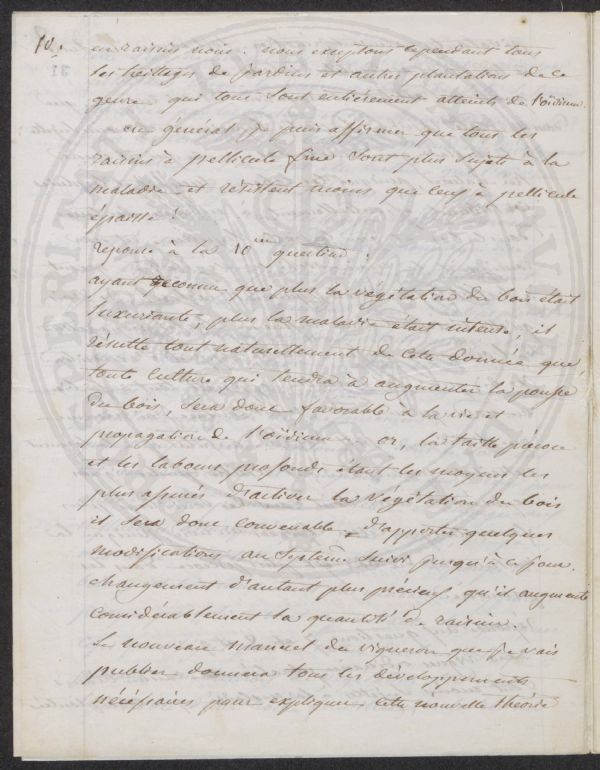 10.
en raisins noirs. nous exceptons cependant tous
les treillages de jardins et autres plantations de ce
genre qui tous sont entièrement atteints de l'oïdium.
en général, je puis affirmer que tous les
raisins à pellicule fine sont plus sujets à la
maladie et résistent moins que ceux à pellicule
épaisse.
reponse à la 10me question.
ayant reconnu que plus la végétation du bois était
luxuriante, plus la maladie était intense, il
résulte tout naturellement de cette donnée que
toute culture qui tendra à augmenter la pousse
du bois, sera donc favorable à la vie et
propagation de l'oïdium or, la taille précoce
et les labours profonds étant les moyens les
plus assurés d'activer la végétation du bois
il sera donc convenable d'apporter quelques
modifications au système suivi jusqu'à ce jour.
changement d'autant plus précieux qu'il augmente
considérablement la quantité de raisins.
Le nouveau manuel du vigneron que je vais
publier donnera tous les développements
nécessaires pour expliquer cette nouvelle théorie